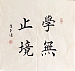 學無
止境